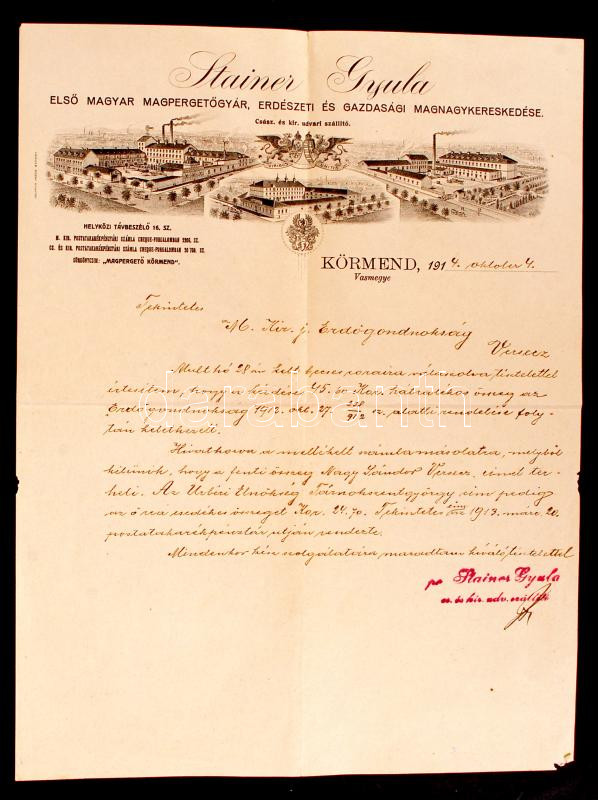 Stainer Gyula
ELSŐ MAGYAR MAGPERGETŐGYÁR, ERDÉSZETI ÉS GAZDASÁGI MAGNAGYKERESKEDÉSE.
Csász. és kir. udvari szállitó.
HELYKÖZI TÁVBESZÉLŐ 16. SZ.
M. KIR. POSTATAKARÉKPÉNZTÁRI SZÁMLA CHEQUE-FORGALOMBAN SZ.
CS. ÉS KIR. POSTATAKARÉKPÉNZTÁRI SZÁMLA CHEQUE-FORGALOMBAN SZ.
SÜRGÖNYCZIM: „MAGPERGETŐ KÖRMEND".
KÖRMEND, 1914. oktober 4.
Vasmegye
Tekintetes
M. Kir. j. Erdőgondnokság
Versecz
Mult hó 28 án kelt becses soraira válaszolva tisztelettel
értesitem, hogy a kérdéses 45.60 Kor. hátralékos összeg az
Erdőgondnokság 1912. okt. 27. 258/912 sz. alatti rendelése foly-
tán keletkezett.
Hivatkozva a mellékelt számla másolatra, melyből
kitünik, hogy a fenti összeg Nagy Sándor Versec, cimet ter-
heli. Az Urbéri Elnökség Tárnokszentgyörgy cim pedig
az ő rea esedékes összeget Kor. 24.70. Tekintetes cim 1913. márc. 20.
postatakarékpénztár utján rendezte.
Mindenkor kész szolgálatára maradtam kiváló tisztelettel
pr Stainer Gyula
cs. és kir. udv. szállitó
darabanth